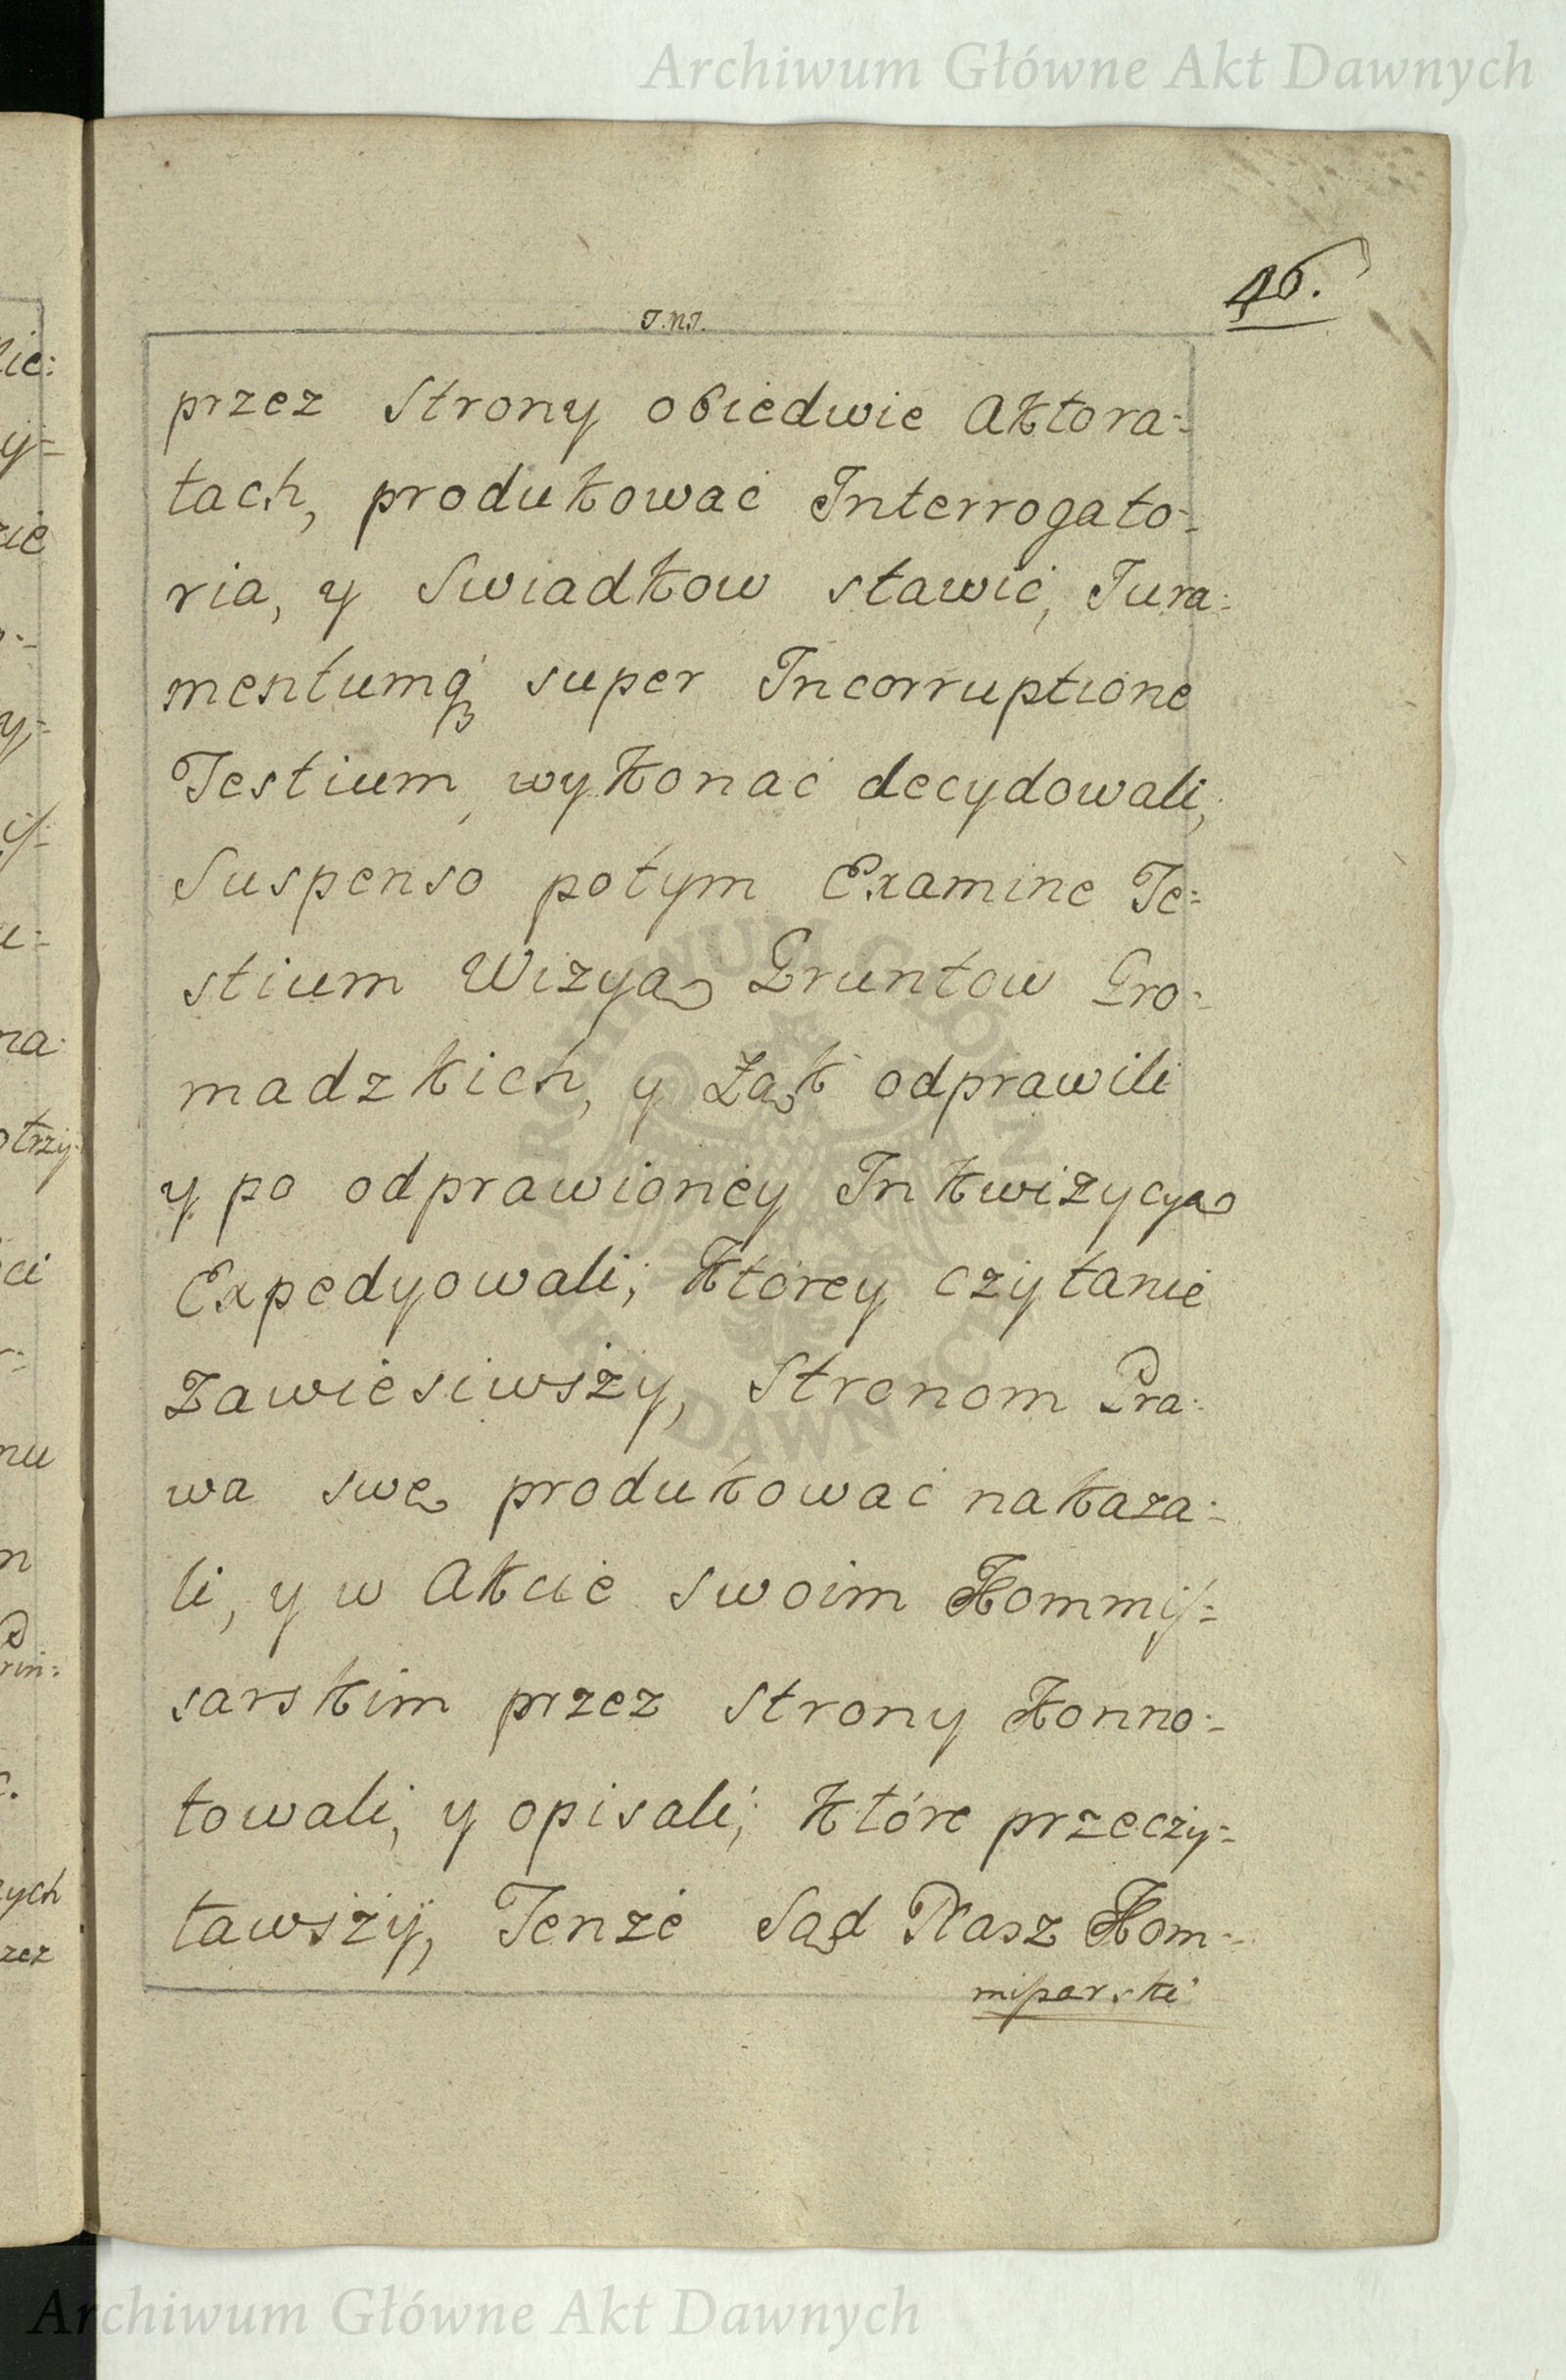 Archiwum Główne Akt Dawnych
46.
J.N.J.
przez Strony obiedwie Aktora-
tach, produkować Interrogato-
ria, y Swiadkow stawić, Jura-
mentumq3 super Incorruptione
Testium, wykonać decydowali,
Suspenso potym Examine Te-
stium Wizyą Gruntow Gro-
madzkich, y Ląk odprawili
y po odprawioney Inkwizycyą
Expedyowali; którey czytanie
Zawiesiwszy, Stronom Pra-
wa swe produkować nakaza-
li, y w Akcie swoim Kommis-
sarskim przez Strony Konno-
towali, y opisali; które przeczy-
tawszy, Tenże Sąd Nasz Kom-
missarski
ARCHIWUM GŁÓWNE AKT DAWNYCH
Archiwum Główne Akt Dawnych